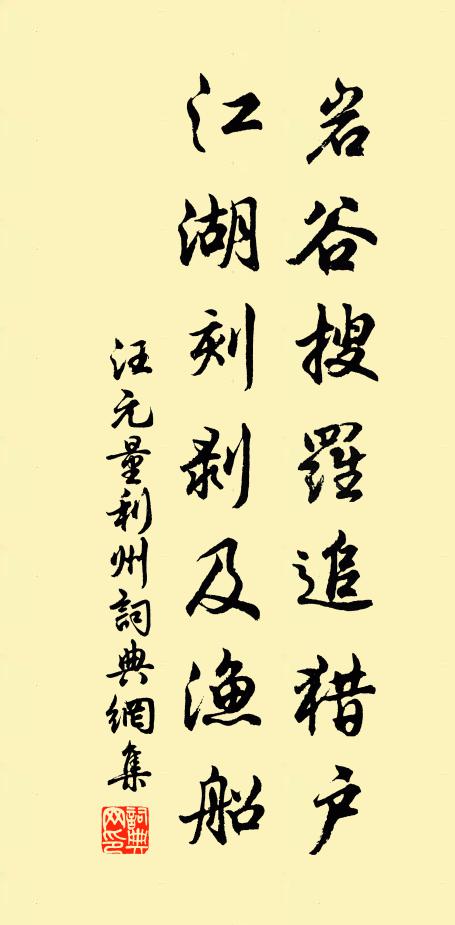 岩谷搜羅追猎户
江湖刻剥及渔船
汪元量利州詞典網集
詞典网印